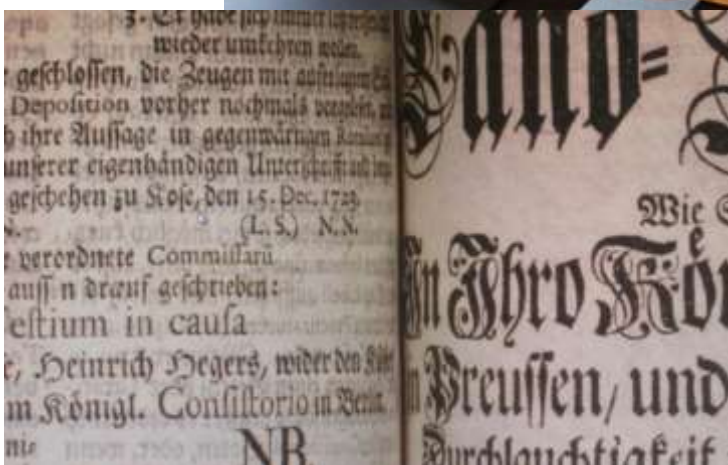 3. Er habe sich
wieder umkehren wollen.
geschlossen, die Zeugen mit
Deposition vorher nochmals
ihre Aussage in gegenwärtigen
unserer eigenhändigen Unterschrifft
geschehen zu Kose, den 15. Dec. 1723.
N. (L. S.) N. N.
verordnete Commissarii
auss n drauf geschrieben:
estium in causa
Heinrich Hegers, wider den
m Königl. Consistorio in Berlin.
NB.
Land=
Wie
In Ihro Kön
Preussen, und
Durchlauchtigkeit